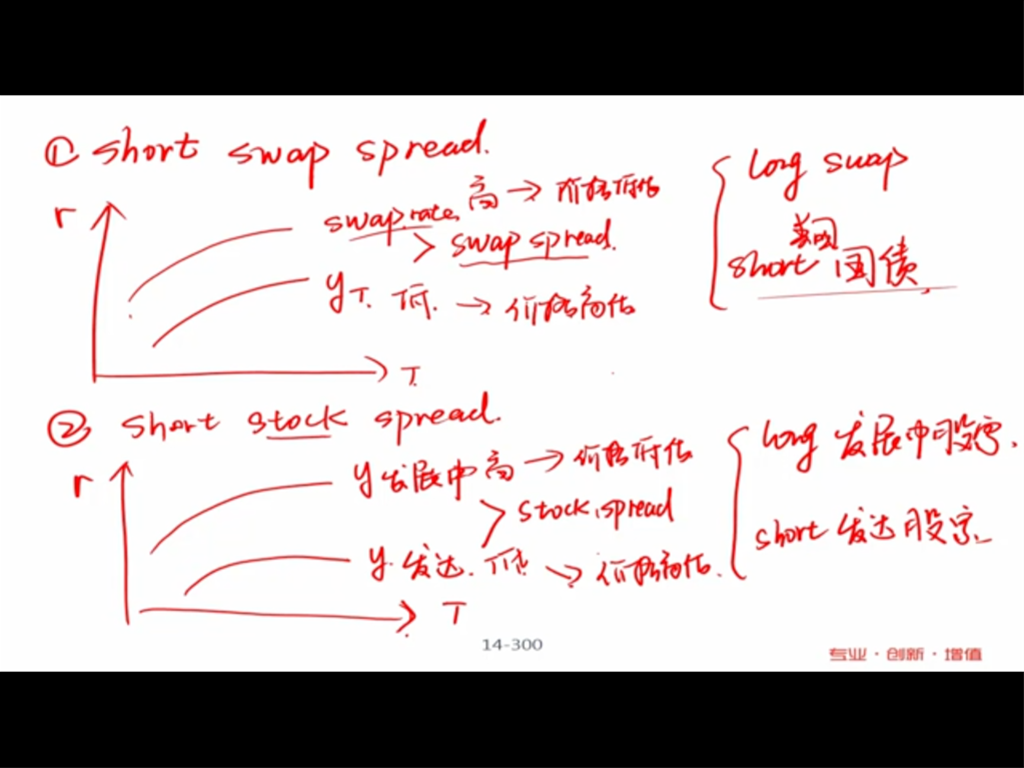 ① short swap spread.
r
swap rate 高 → 价格低估
> swap spread.
y_T. 低. → 价格高估
T.
long swap
美国
short 国债.
② short stock spread.
r
y 发展中 高 → 价格低估
> stock spread
y. 发达. 低 → 价格高估.
T
long 发展中股票.
short 发达股票.
14-300
专业·创新·增值